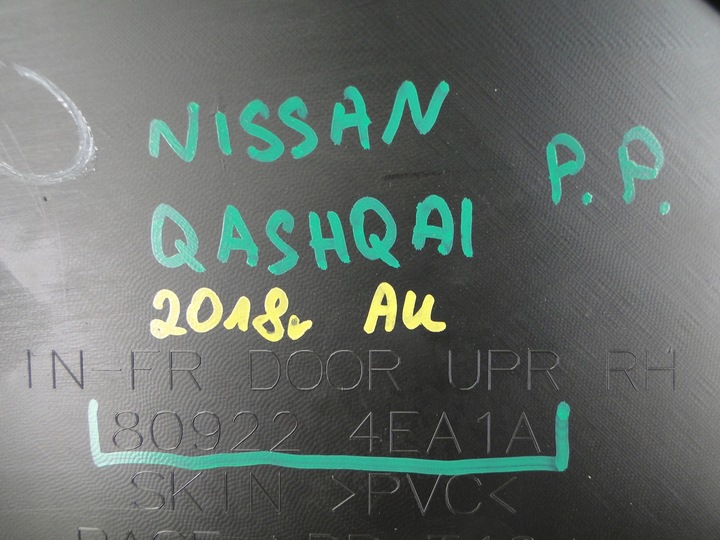 NISSAN
P.P.
QASHQAI
2018г Аи
IN-FR DOOR UPR RH
80922 4EA1A
SKIN >PVC<